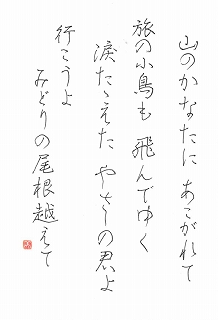 山のかなたに あこがれて
旅の小鳥も 飛んでゆく
涙たゝえた やさしの君よ
行こうよ
みどりの尾根越えて